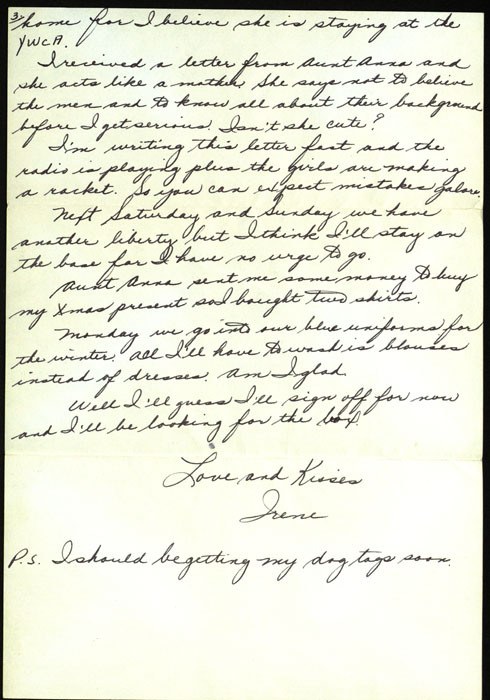 3/ home for I believe she is staying at the
YWCA.
I received a letter from Aunt Anna and
she acts like a mother. She says not to believe
the men and to know all about their background
before I get serious. Isn't she cute?
I'm writing this letter fast and the
radio is playing plus the girls are making
a racket. So you can expect mistakes galore.
Next Saturday and Sunday we have
another liberty but I think I'll stay on
the base for I have no urge to go.
Aunt Anna sent me some money to buy
my Xmas present so I bought two shirts.
Monday we go into our blue uniforms for
the winter. All I'll have to wash is blouses
instead of dresses. Am I glad.
Well I'll guess I'll sign off for now
and I'll be looking for the box.
Love and Kisses
Irene
P.S. I should be getting my dog tags soon.